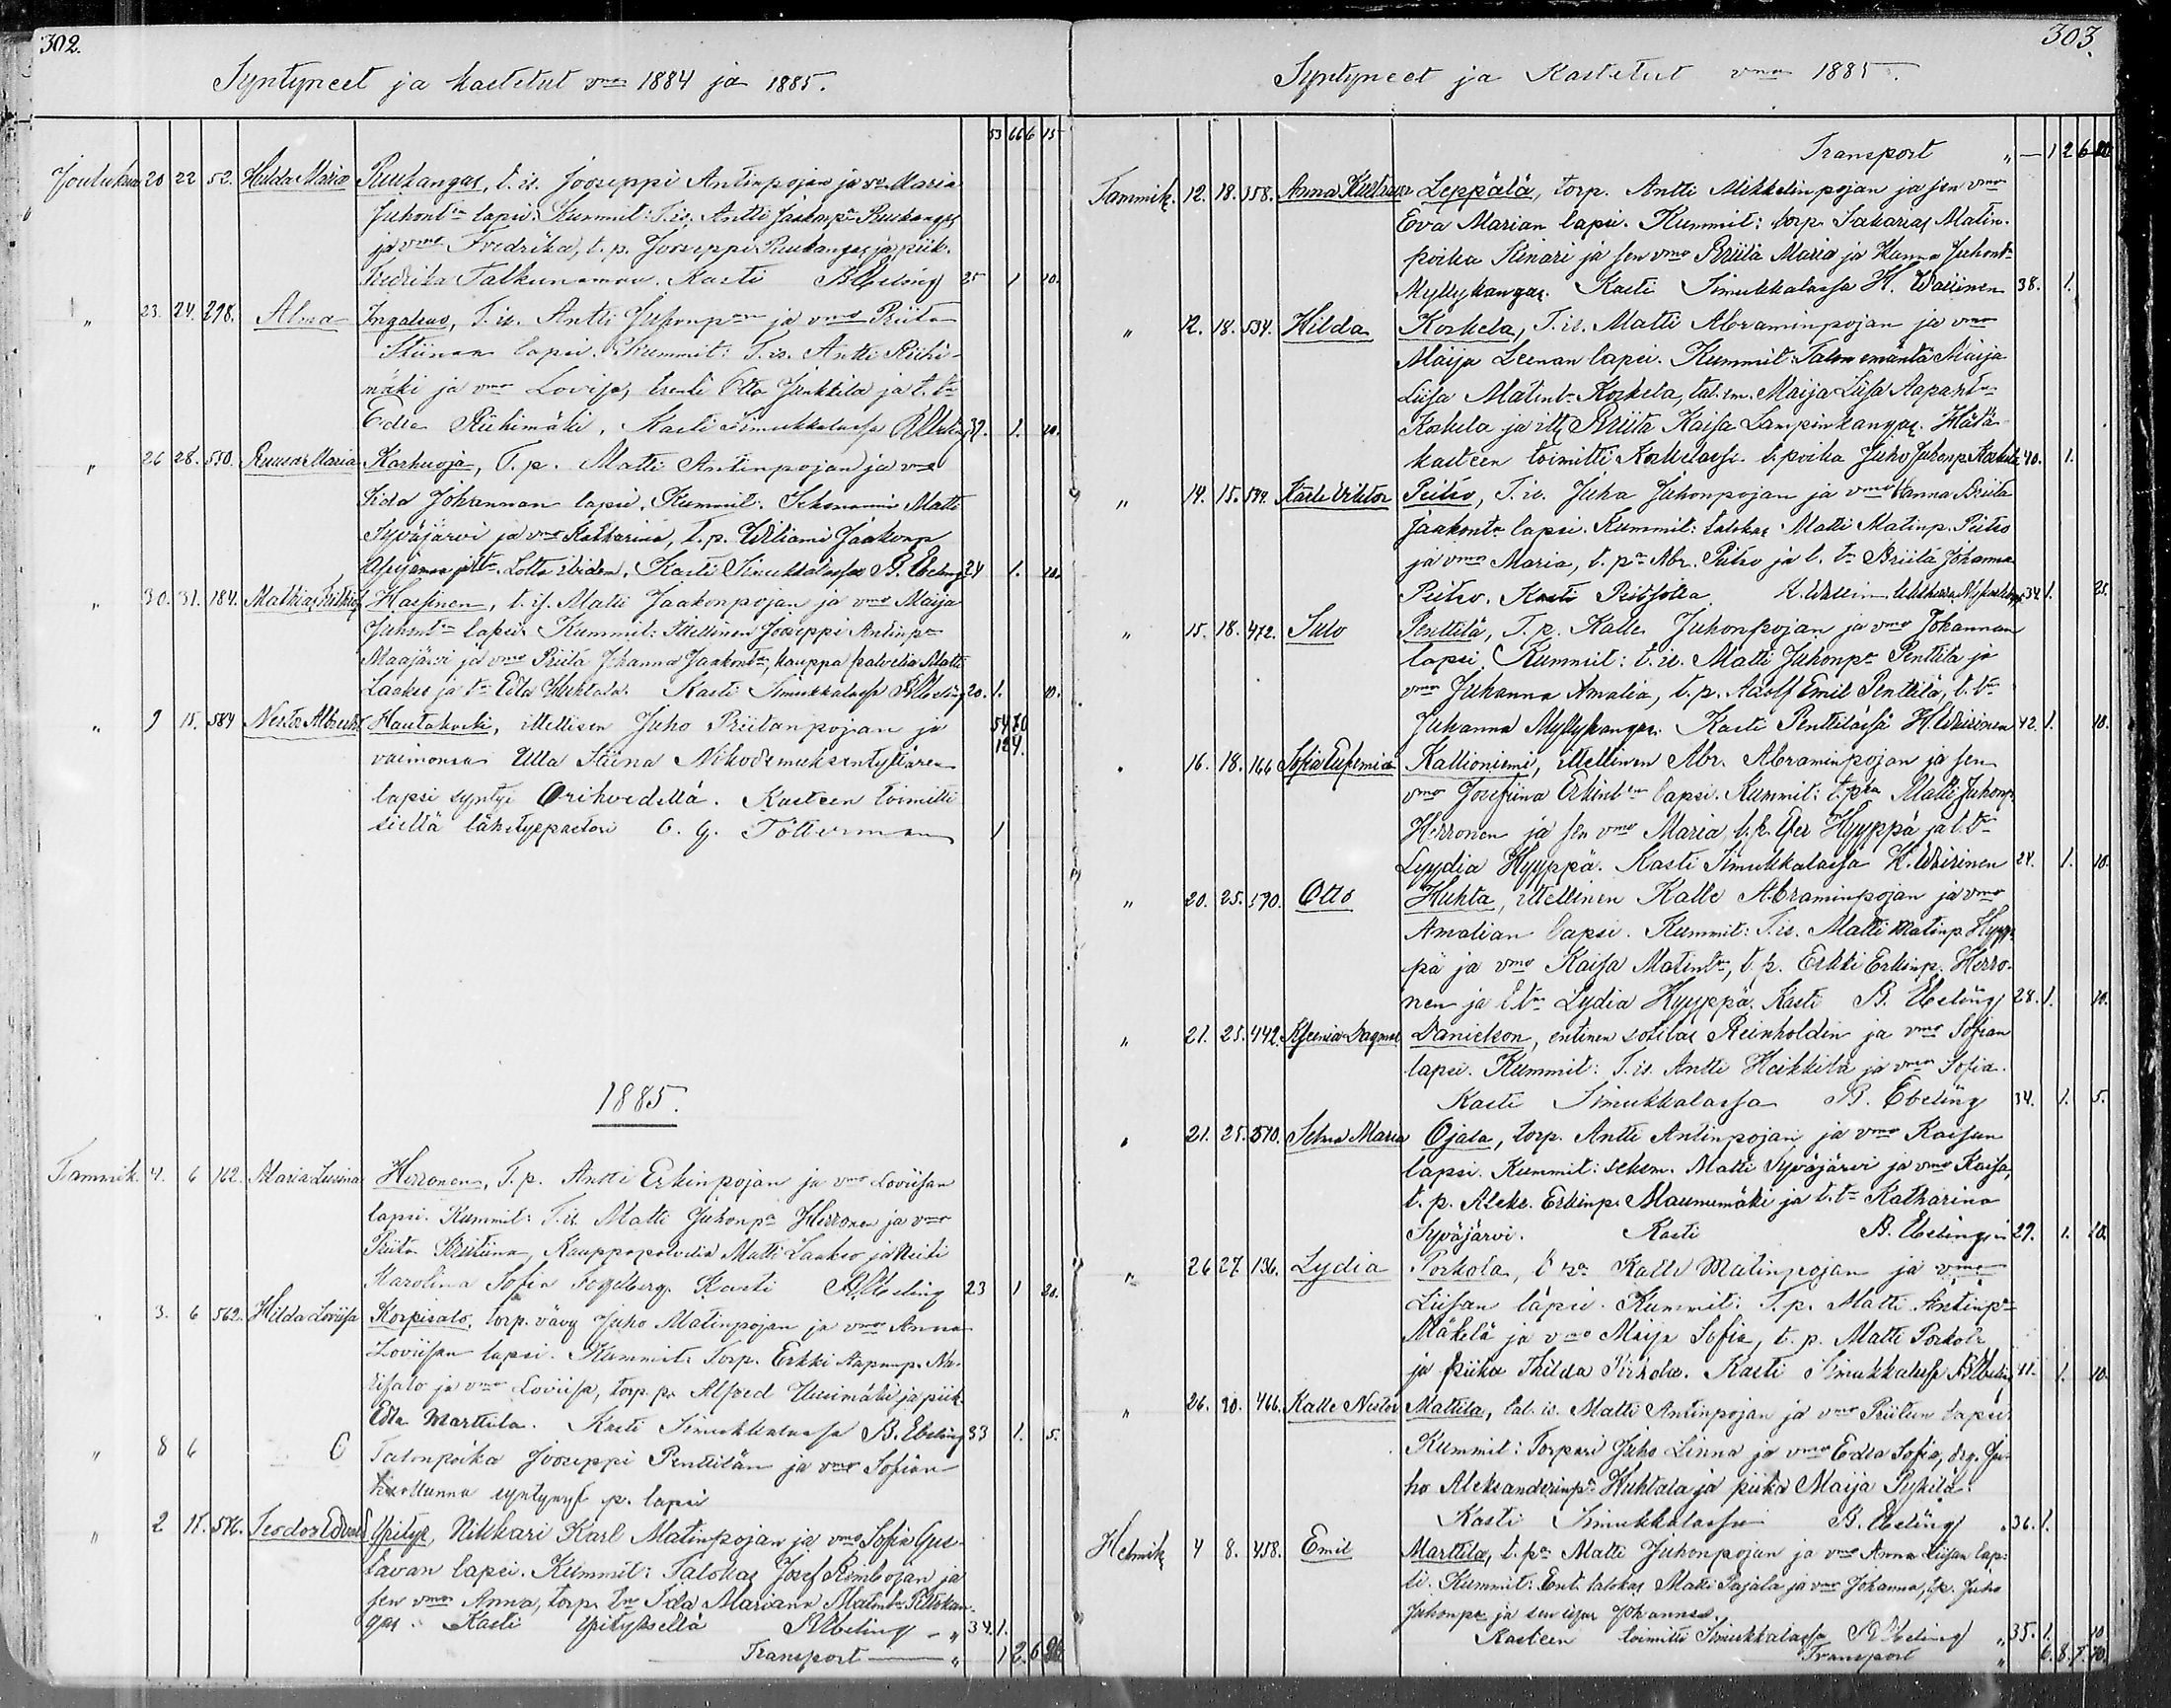 302.
Syntyneet ja Kastetut vna 1884 ja 1885.
53 66 6 15
Jouluk. 20 22 52. Hilda Maria Ruukangas, t. is. Jooseppi Antinpojan ja vn Maria
Juhont:n lapsi. Kummit: T. is. Antti Jaakonp:a Ruukangas
ja vmo Fredrika, t. p. Jooseppi Ruukangas ja piik.
Fredrika Talkunamaa. Kasti B. Ebeling 25 1 10.
" 23. 24. 298. Alma Ingalsuo, T. is. Antti Juhonp:an ja vmo Priita
Stiinan lapsi. Kummit: T. is. Antti Riihi-
mäki ja vmo Lovisa, Otto Junkkila ja t. t:r
Edla Riihimäki, Kasti Simukkalassa B. Ebeling 32. 1. 10.
" 26 28. 550. Maria Karhuoja, T. p. Matti Antinpojan ja vmo
Johannan lapsi. Kummit: Matti
Syväjärvi ja vmo Katharina, t. p. Wiliami Jaakonp.
ja t:r Lotta ibidem. Kasti Simukkalassa B. Ebeling 24 1. 10.
" 30. 31. 184. Mathias Hassinen, t. is. Matti Jaakonpojan ja vmo Maija
Juhont:n lapsi. Kummit: Itellinen Jooseppi Antinp:a
Maajärvi ja vmo Priita Johanna Jaakont:r, kauppapalvelia Matti
Laakso ja t:r Edla Huhtala. Kasti Simukkalassa B. Ebeling 20. 1. 10.
" 9 15. 584 Nestor Albert Hautakoski, itellisen Juho Priitanpojan ja 54 70
vaimonsa Ulla Stiina Nikodemuksentyttären 124.
lapsi syntyi Orihvedellä. Kasteen toimitti
sieltä lähetyspastori C. G. Tötterman 1
1885.
Tammik. 4. 6 162. Maria Herronen, T. p. Antti Erkinpojan ja vmo Loviisan
lapsi. Kummit: T. is. Matti Juhonp:a Herronen ja vmo
Priita Kristiina, Kauppapalvelia Matti Laakso ja Neiti
Karolina Sofia Fogelberg. Kasti B. Ebeling 23 1 20.
" 3. 6 562. Hilda Loviisa Korpisalo, torp. vävy Juho Matinpojan ja vmo Anna
Loviisan lapsi. Kummit: Torp. Erkki Aapnnp.
ja vmo Loviisa, torp. p. Alfred Uusimäki ja piik.
Edla Marttila. Kasti Simukkalassa B. Ebeling 33 1. 5.
" 8 6 Talonpoika Jooseppi Penttilän ja vmo Sofian
kuolluna syntynyt p. lapsi
" 2 11. 576. Teodor Edvard Ypityk, Nikkari Karl Matinpojan ja vmo Sofia Gus-
tavan lapsi. Kummit: Talokas Josef ja
sen vmo Anna, torp. t:r Ida Mariana Matint:r
gas. Kasti B. Ebeling " 34. 1.
Transport " 1 2 6
303
Syntyneet ja Kastetut vna 1885.
Transport " — 1 2 6
Tammik. 12. 18. 358. Anna Kustaava Leppälä, torp. Antti Mikkelinpojan ja sen vmo
Eva Marian lapsi. Kummit: torp. Sakarias Matin-
poika ja sen vmo Briita Maria ja Hanna Juhont:r
Myllykangas. Kasti Simukkalassa H. Waisinen 38. 1.
" 12. 18. 534. Hilda Koskela, T. is. Matti Abraminpojan ja vmo
Maija Leenan lapsi. Kummit: Talon emäntä Maija
Liisa Matint:r Koskela, tal. em. Maija Liisa Aapont:r
Koskela ja itl. Briita Kaisa Lampinkangas. Hätä-
kasteen toimitti Koskelassa t. poika Juho Juhonp. Koskela 40. 1.
" 14. 15. 544. Kaarle Viktor Peitso, T. is. Juha Juhonpojan ja vmo Hanna Briita
Jaakont:r lapsi. Kummit: talokas Matti Matinp. Peitso
ja vmo Maria, t. p:a Abr. Peitso ja t. t:r Briita Johanna
Peitso. Kasti 34. 1. 25.
" 15. 18. 472. Sulo Penttilä, T. p. Kalle Juhonpojan ja vmo Johannan
lapsi. Kummit: t. is. Matti Juhonp:a Penttilä ja
vmo Juhanna Amalia, t. p. Adolf Emil Penttilä, t. t:r
Juhanna Myllykangas. Kasti Penttilässä H. Waisinen 42. 1. 10.
" 16. 18. 166 Sofia Eufemia Kallioniemi, itellinen Abr. Abraminpojan ja sen
vmo Josefiina Erkint:n lapsi. Kummit: t. p:ka Matti Juhonp.
Herronen ja sen vmo Maria, t. p. Hyyppä ja t. t:r
Lyydia Hyyppä. Kasti Simukkalassa H. Waisinen 24. 1. 10.
" 20. 25. 590. Otto Huhta, itellinen Kalle Abraminpojan ja vmo
Amalian lapsi. Kummit: T. is. Matti Matinp. Hyyp-
pä ja vmo Kaisa Matint:r, t. p. Erkki Erkinp. Herro-
nen ja t. t:r Lydia Hyyppä. Kasti B. Ebeling 28. 1. 10.
" 21. 25. 442. Dagmar Danielson, entinen sotilas Reinholdin ja vmo Sofian
lapsi. Kummit: T. is. Antti Heikkilä ja vmo Sofia.
Kasti Simukkalassa B. Ebeling 34. 1. 5.
" 21. 25. 570. Selma Maria Ojala, torp. Antti Antinpojan ja vmo Kaisan
lapsi. Kummit: Matti Syväjärvi ja vmo Kaisa,
t. p. Aleks. Erkinp. Maunumäki ja t. t:r Katharina
Syväjärvi. Kasti B. Ebeling 29. 1. 10.
" 26 27. 136. Lydia Porkola, t. p:a Kalle Matinpojan ja vmo
Liisan lapsi. Kummit: T. p. Matti Antinp:a
Mäkelä ja vmo Maija Sofia, t. p. Matti Porkola
ja piika Thilda Pirkola. Kasti Simukkalassa B. Ebeling 41. 1. 10.
" 26. 30. 466. Kalle Nestor Mattila, tal. is. Matti Antinpojan ja vmo Priitan lapsi
Kummit: Torpari Juho Linna ja vmo Edla Sofia, drg. Ju-
ho Aleksanderinp:a Huhtala ja piika Maija
Kasti Simukkalassa B. Ebeling " 36. 1.
Helmik. 4 8. 458. Emil Marttila, t. p:a Matti Juhonpojan ja vmo Anna Liisan lap-
si. Kummit: Ent. talokas Matti Pajala ja vmo Johanna, tp. Juho
Juhonp:a ja sen sisar Johanna.
Kasteen toimitti Simukkalassa B. Ebeling " 35. 1. 10
Transport " 6. 8. 7. 70.